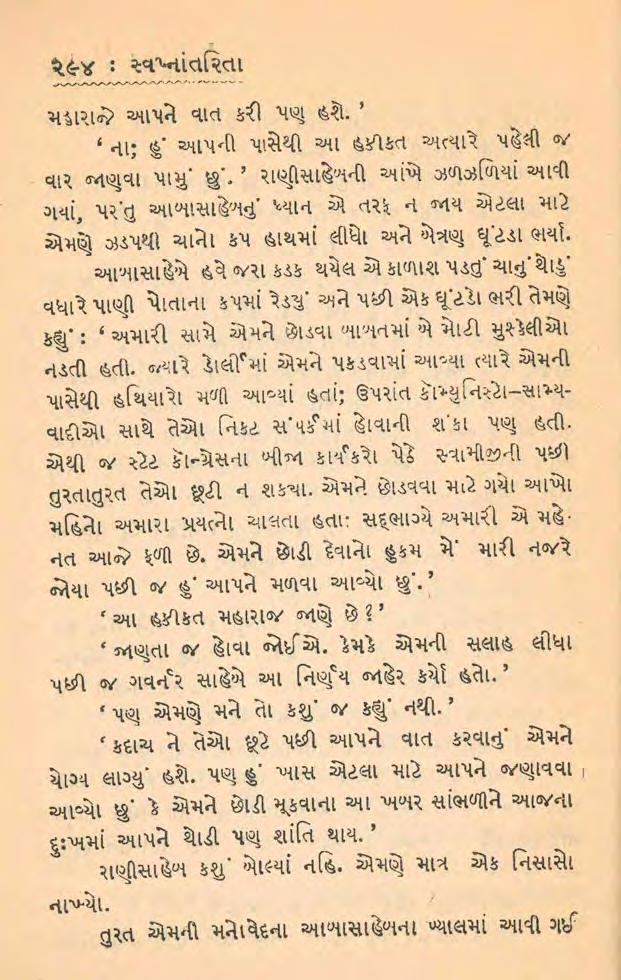 ૨૯૪ : સ્વપ્નાંતરિતા
મહારાજે આપને વાત કરી પણ હશે.’
‘ ના; હું આપની પાસેથી આ હકીકત અત્યારે પહેલી જ
વાર જાણવા પામું છું.’ રાણીસાહેબની આંખે ઝળઝળિયાં આવી
ગયાં, પરંતુ આબાસાહેબનું ધ્યાન એ તરફ ન જાય એટલા માટે
એમણે ઝડપથી ચાનો કપ હાથમાં લીધો અને બેત્રણ ઘૂંટડા ભર્યા.
આબાસાહેબે હવે જરા કડક થયેલ એ કાળાશ પડતું ચાનું થોડું
વધારે પાણી પોતાના કપમાં રેડયું અને પછી એક ઘૂંટડો ભરી તેમણે
કહ્યું : ‘ અમારી સામે એમને છોડવા બાબતમાં બે મોટી મુશ્કેલીઓ
નડતી હતી. જ્યારે ડોર્લીમાં એમને પકડવામાં આવ્યા ત્યારે એમની
પાસેથી હથિયારો મળી આવ્યાં હતાં; ઉપરાંત કૉમ્યુનિસ્ટો–સામ્ય-
વાદીઓ સાથે તેઓ નિકટ સંપર્કમાં હોવાની શંકા પણ હતી.
એથી જ સ્ટેટ કૉન્ગ્રેસના બીજા કાર્યકરો પેઠે સ્વામીજીની પછી
તુરતાતુરત તેઓ છૂટી ન શક્યા. એમને છોડવવા માટે ગયો આખો
મહિનો અમારા પ્રયત્નો ચાલતા હતા: સદ્ભાગ્યે અમારી એ મહે-
નત આજે ફળી છે. એમને છોડી દેવાનો હુકમ મેં મારી નજરે
જોયા પછી જ હું આપને મળવા આવ્યો છું.’
‘ આ હકીકત મહારાજ જાણે છે ?’
‘ જાણતા જ હોવા જોઈએ. કેમકે એમની સલાહ લીધા
પછી જ ગવર્નર સાહેબે આ નિર્ણય જાહેર કર્યો હતો.’
‘ પણ એમણે મને તો કશું જ કહ્યું નથી.’
‘ કદાચ ને તેઓ છૂટે પછી આપને વાત કરવાનું એમને
યોગ્ય લાગ્યું હશે. પણ હું ખાસ એટલા માટે આપને જણાવવા
આવ્યો છું કે એમને છોડી મૂકવાના આ ખબર સાંભળીને આજના
દુઃખમાં આપને થોડી પણ શાંતિ થાય.’
રાણીસાહેબ કશું બોલ્યાં નહિ. એમણે માત્ર એક નિસાસો
નાખ્યો.
તુરત એમની મનોવેદના આબાસાહેબના ખ્યાલમાં આવી ગઈ